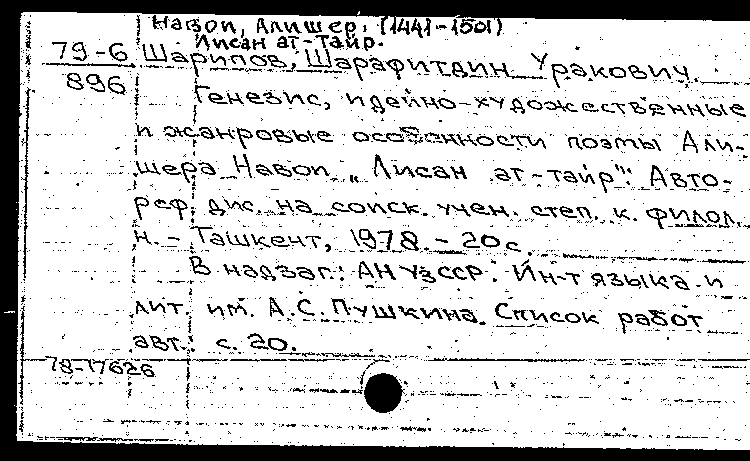 Навои, Алишер. (1441-1501)
Лисан ат-тайр.
79-6 Шарипов, Шарафитдин Уракович.
896
Генезис, идейно-художественные
и жанровые особенности поэмы Али-
шера Навои „Лисан ат-тайр": Авто-
реф. дис. на соиск. учен. степ. к. филол.
н. - Ташкент, 1978. - 20 с.
В надзаг.: АН УзССР. Ин-т языка и
лит. им. А.С. Пушкина. Список работ
авт.: с. 20.
78-17626